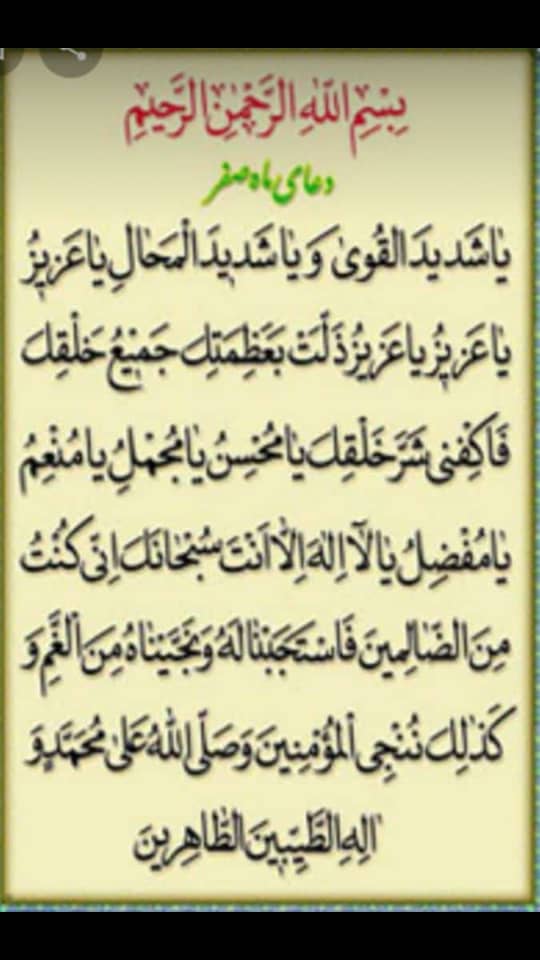 بِسْمِ اللّٰهِ الرَّحْمٰنِ الرَّحیمِ
دعای ماه صفر
یٰا شَدیدَ الْقُویٰ وَ یٰا شَدیدَ الْمَحٰالِ یٰا عَزیزُ
یٰا عَزیزُ یٰا عَزیزُ ذَلَّتْ بِعَظِمَتِكَ جَمیْعُ خَلْقِكَ
فَاكْفِنی شَرَّ خَلْقِكَ یٰا مُحْسِنُ یٰا مُجْمِلُ یٰا مُنْعِمُ
یٰا مُفْضِلُ یٰا لٰآ اِلٰهَ اِلّٰا اَنْتَ سُبْحٰانَكَ اِنّی كُنْتُ
مِنَ الضّٰالِمینَ فَاسْتَجَبْنٰا لَهُ وَ نَجَّیْنٰاهُ مِنَ الْغَّمِ وَ
كَذٰلِكَ نُنْجِی الْمُؤْمِنینَ وَ صَلَّی اللّٰهُ عَلیٰ مُحَمَّدٍ وَ
اٰلِهِ الطَّیِّبینَ الطّٰاهِرینَ